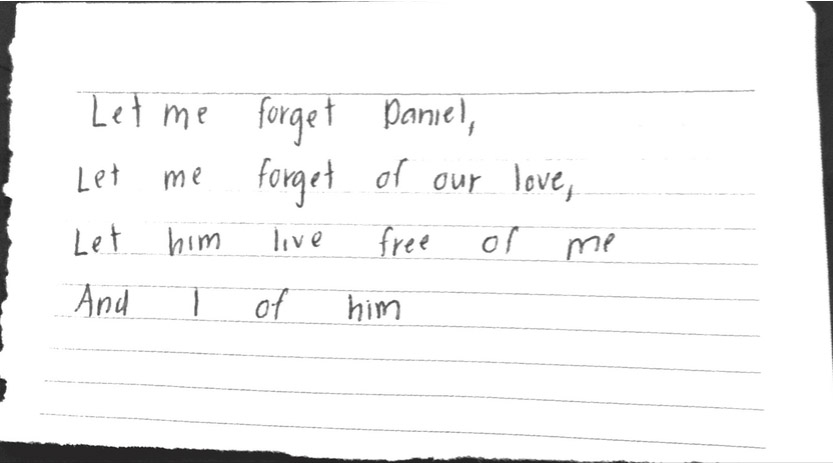 Let me forget Daniel,
Let me forget of our love,
Let him live free of me
And I of him